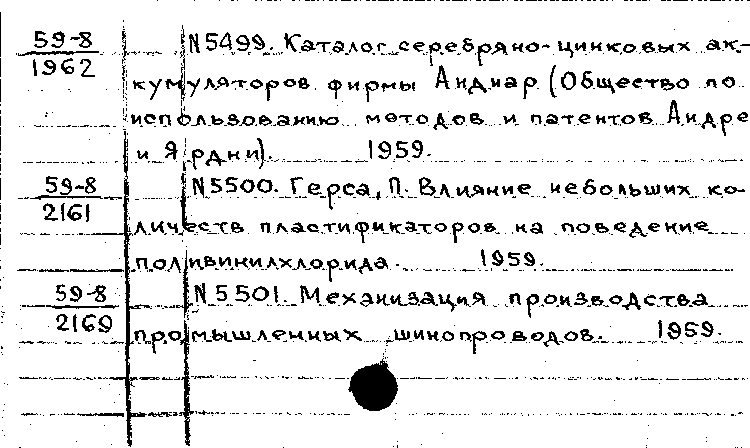 59-8 N5499. Каталог серебряно-цинковых ак-
1962 кумуляторов фирмы Андиар (Общество по
использованию методов и патентов Андре
и Ярдни). 1959.
59-8 N5500. Герса, П. Влияние небольших ко-
2161 личеств пластификаторов на поведение
поливинилхлорида. 1959.
59-8 N5501. Механизация производства
2169 промышленных шинопроводов. 1959.